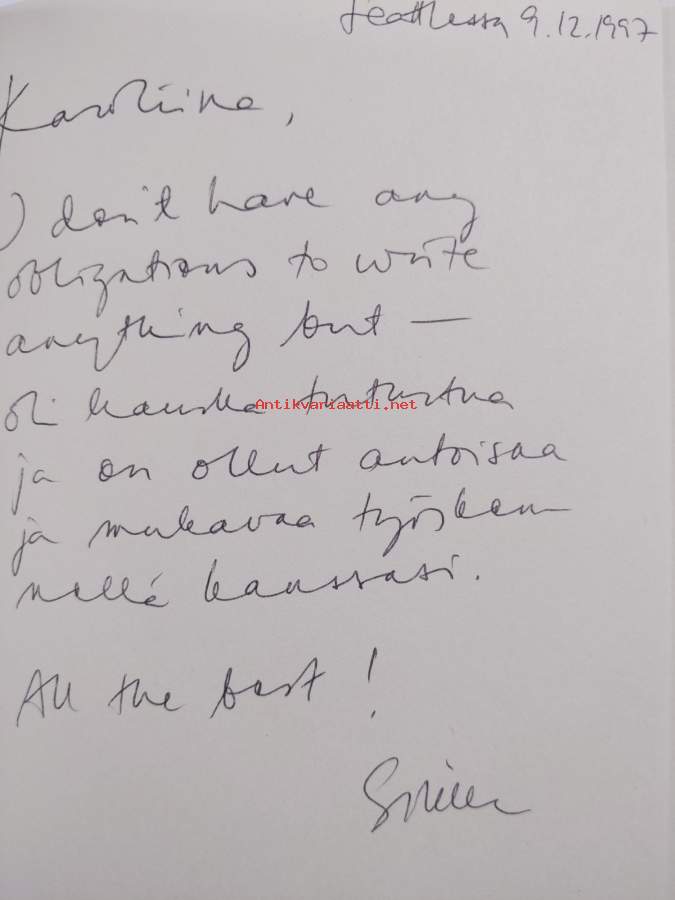 Seattlessa 9.12.1997
Karoliina,
I don't have any
obligations to write
anything but —
oli hauska tutustua
Antikvariaatti.net
ja on ollut antoisaa
ja mukavaa työsken-
nellä kanssasi.
All the best!